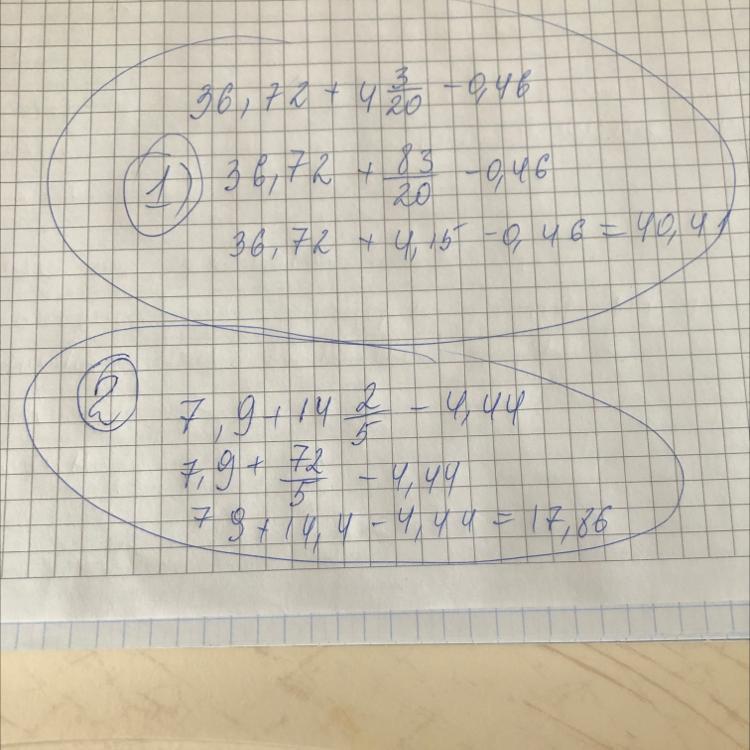 36,72 + 4 3/20 - 0,46
1) 36,72 + 83/20 - 0,46
36,72 + 4,15 - 0,46 = 40,41
2 7,9 + 14 2/5 - 4,44
7,9 + 72/5 - 4,44
7 9 + 14,4 - 4,44 = 17,86